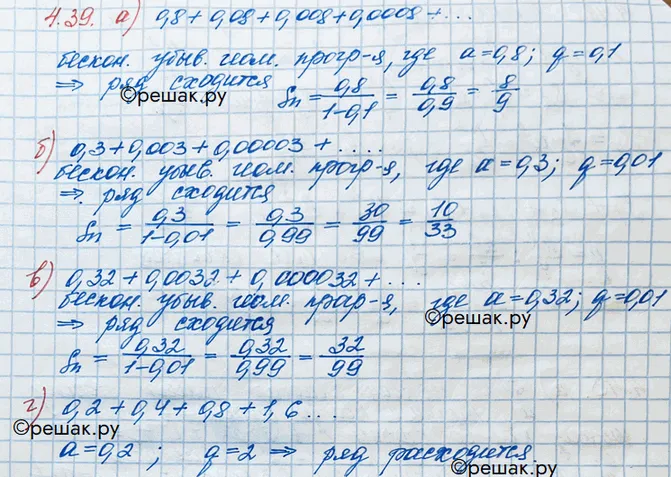 4.39. а) 0,8 + 0,08 + 0,008 + 0,0008 + ...
бескон. убыв. геом. прогр-я, где a = 0,8; q = 0,1
⇒ ряд сходится Sn = 0,8/(1-0,1) = 0,8/0,9 = 8/9
©решак.ру
б) 0,3 + 0,003 + 0,00003 + ....
бескон. убыв. геом. прогр-я, где a = 0,3; q = 0,01
⇒ ряд сходится
Sn = 0,3/(1-0,01) = 0,3/0,99 = 30/99 = 10/33
в) 0,32 + 0,0032 + 0,000032 + ...
бескон. убыв. геом. прогр-я, где a = 0,32; q = 0,01
⇒ ряд сходится
©решак.ру
Sn = 0,32/(1-0,01) = 0,32/0,99 = 32/99
г) 0,2 + 0,4 + 0,8 + 1,6 ...
©решак.ру
a = 0,2 ; q = 2 ⇒ ряд расходится.
©решак.ру